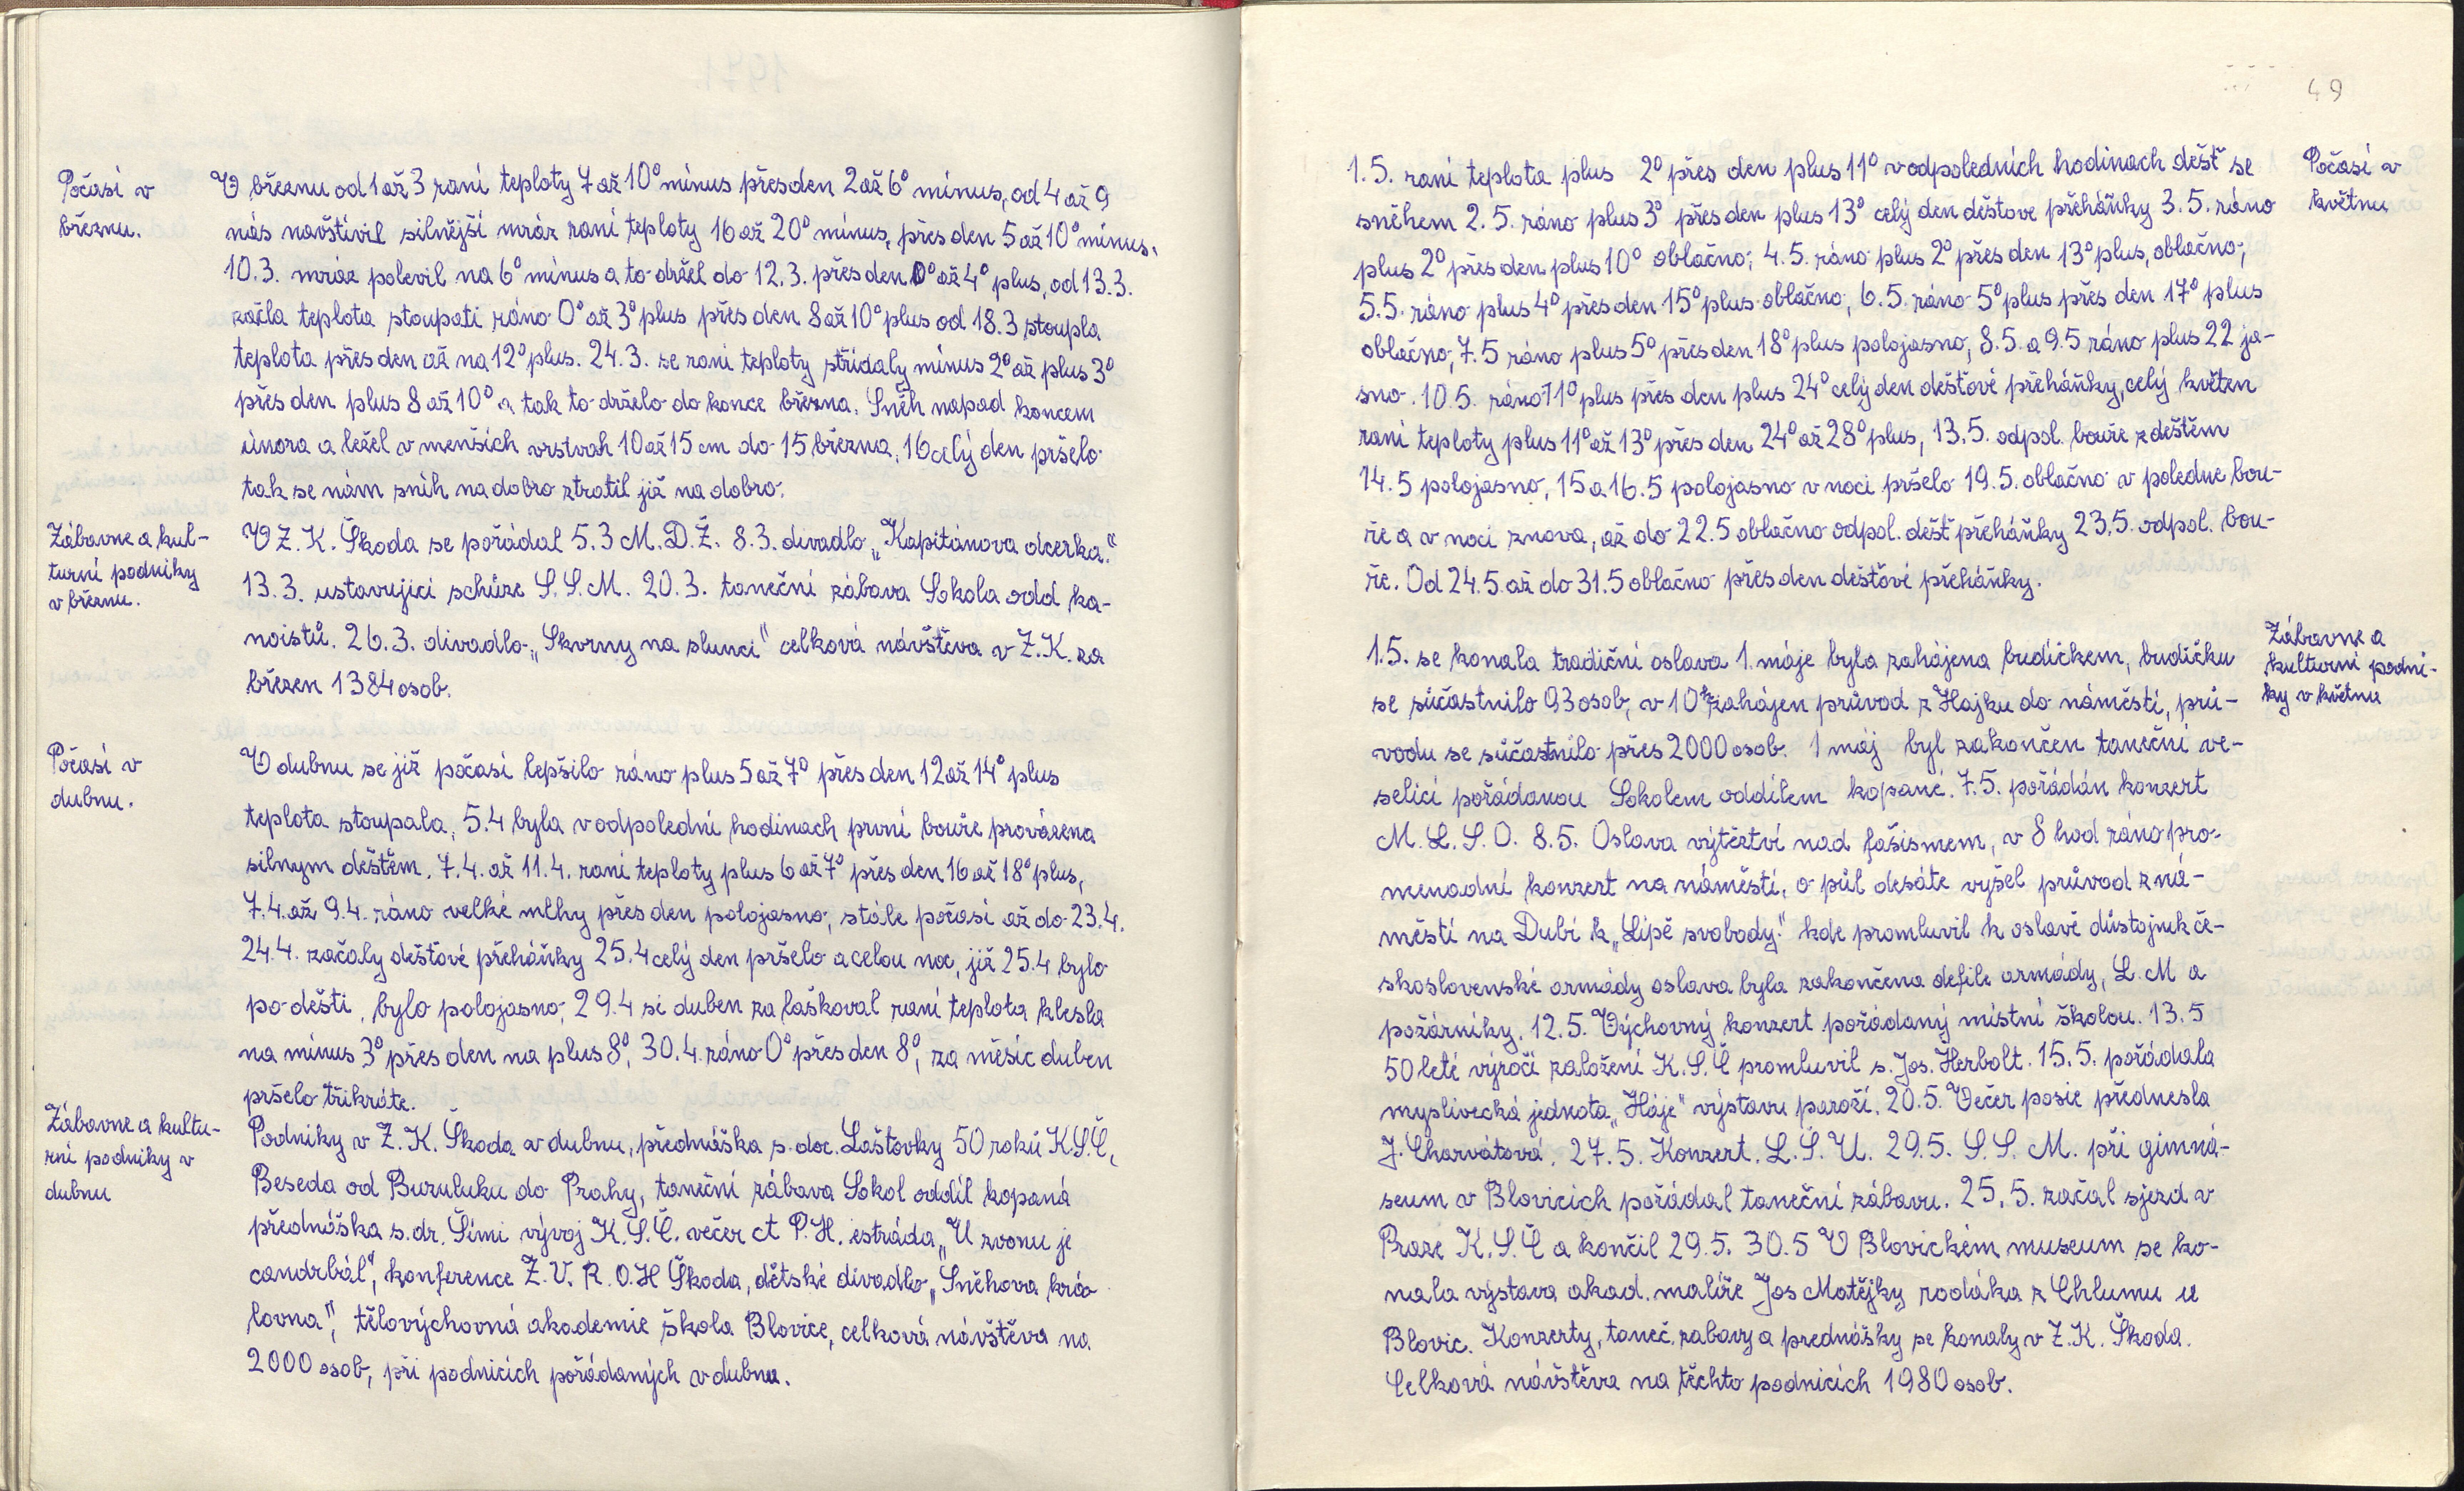 Počasí v
březnu.
V březnu od 1 až 3 raní teploty 7 až 10° mínus přes den 2 až 6° mínus, od 4 až 9
nás navštívil silnější mráz raní teploty 16 až 20° mínus, přes den 5 až 10° mínus.
10.3. mráz polevil na 6° mínus a to držel do 12.3. přes den 0° až 4° plus, od 13.3.
začla teplota stoupati ráno 0° až 3° plus přes den 8 až 10° plus od 18.3 stoupla
teplota přes den až na 12° plus. 24.3. se raní teploty střídaly mínus 2° až plus 3°
přes den plus 8 až 10° a tak to drželo do konce března. Sněh napad koncem
února a ležel v menších vrstvah 10 až 15 cm do 15 března, 16 celý den pršelo
tak se nám sníh nadobro ztratil již na dobro.
Zábavne a kul-
turní podniky
v březnu.
V Z. K. Škoda se pořádal 5.3 M.D.Ž. 8.3. divadlo „Kapitánova dcerka."
13.3. ustavující schůze S.S.M. 20.3. taneční zábava Sokola odd ka-
noistů. 26.3. divadlo „Skvrny na slunci" celková návštěva v Z.K. za
březen 1384 osob.
Počasí v
dubnu.
V dubnu se již počasí lepšilo ráno plus 5 až 7° přes den 12 až 14° plus
teplota stoupala, 5.4 byla v odpolední hodinach první bouře provázena
silnym deštěm. 7.4. až 11.4. raní teploty plus 6 až 7° přes den 16 až 18° plus,
7.4. až 9.4. ráno velké mlhy přes den polojasno, stále počasí až do 23.4.
24.4. začaly dešťové přeháňky 25.4 celý den pršelo a celou noc, již 25.4 bylo
po dešti, bylo polojasno; 29.4 si duben zalaškoval raní teplota klesla
na mínus 3° přes den na plus 8°, 30.4. ráno 0° přes den 8°, za měsíc duben
pršelo třikráte.
Zábavne a kultu-
rní podniky v
dubnu
Podniky v Z. K. Škoda v dubnu, přednáška s. doc. Laštovky 50 roků K.S.Č,
Beseda od Buzuluku do Prahy, taneční zábava Sokol oddíl kopaná
přednáška s. dr. Šimi vývoj K.S.Č. večer ct P.H. estráda „U zvonu je
candrbál", konference Z.V. R.O.H Škoda, dětské divadlo „Sněhova krá
lovna", tělovýchovná akademie škola Blovice, celková návštěva na
2000 osob, při podnicích pořádaných v dubnu.
49
Počasí v
květnu
1.5. raní teplota plus 2° přes den plus 11° v odpoledních hodinach déšť se
sněhem 2.5. ráno plus 3° přes den plus 13° celý den deštove přeháňky 3.5. ráno
plus 2° přes den plus 10° oblačno; 4.5. ráno plus 2° přes den 13° plus, oblačno;
5.5. ráno plus 4° přes den 15° plus oblačno; 6.5. ráno 5° plus přes den 17° plus
oblačno; 7.5 ráno plus 5° přes den 18° plus polojasno; 8.5. a 9.5 ráno plus 22 ja-
sno. 10.5. ráno 11° plus přes den plus 24° celý den dešťové přeháňky, celý květen
raní teploty plus 11° až 13° přes den 24° až 28° plus, 13.5. odpol. bouře z deštěm
14.5 polojasno, 15 a 16.5 polojasno v noci pršelo 19.5. oblačno v poledne bou-
ře a v noci znova, až do 22.5 oblačno odpol. déšť přeháňky 23.5. odpol. bou-
ře. Od 24.5. až do 31.5 oblačno přes den dešťové přeháňky.
Zábavne a
kulturní podni-
ky v květnu
1.5. se konala tradiční oslava 1. máje byla zahájena budíčkem, budíčku
se súčastnilo 93 osob, v 10h zahájen průvod z Hajku do náměstí, prů-
vodu se súčastnilo přes 2000 osob. 1 máj byl zakončen taneční ve-
selicí pořádanou Sokolem oddílem kopané. 7.5. pořádán konzert
M.L.S.O. 8.5. Oslava výtěztví nad fašismem, v 8 hod ráno pro-
menadní konzert na náměstí, o půl desáte vyšel průvod z ná-
městí na Dubí k „Lípě svobody." kde promluvil k oslavě důstojnik če-
skoslovenské armády oslava byla zakončena defile armády, L.M a
požárníky. 12.5. Výchovný konzert pořádaný místní školou. 13.5
50 leté výročí založení K.S.Č promluvil s. Jos. Herbolt. 15.5. pořádala
myslivecká jednota „Háje" výstavu paroží. 20.5. Večer posie přednesla
J. Charvátová. 27.5. Konzert. L.Š.U. 29.5. S.S.M. při gimná-
seum v Blovicích pořádal taneční zábavu. 25.5. začal sjezd v
Praze K.S.Č a končil 29.5. 30.5 V Blovickém museum se ko-
nala výstava akad. malíře Jos Matějky rodáka z Chlumu u
Blovic. Konzerty, taneč. zabavy a prednášky se konaly v Z.K. Škoda.
Celková návštěva na těchto podnicích 1980 osob.